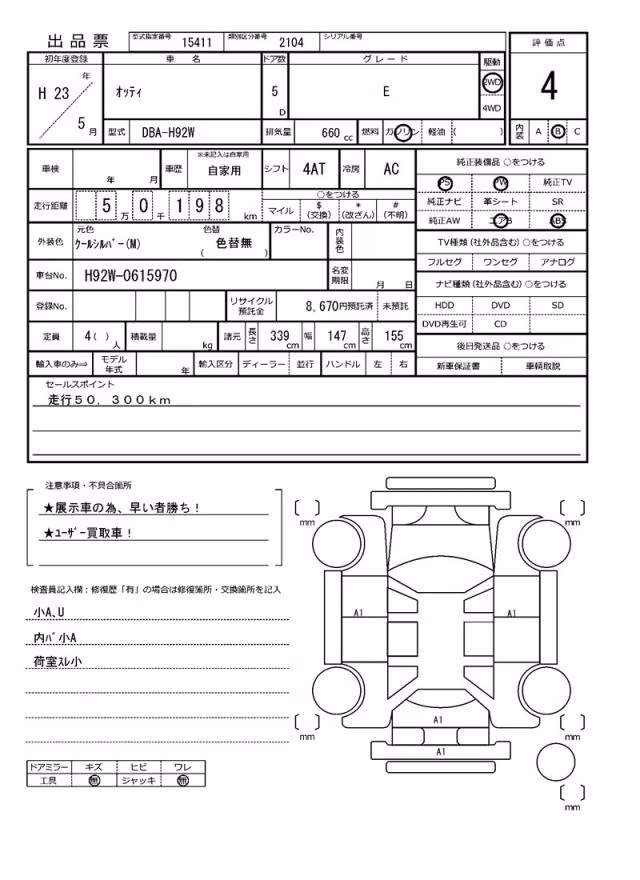 出品票 型式指定番号 15411 類別区分番号 2104 シリアル番号
評価点
4
内装 A B C
初年度登録 車名 ドア数 グレード 駆動
H 23 年 5 月
オッティ 5 D E 2WD 4WD
型式 DBA-H92W 排気量 660 cc 燃料 ガソリン 軽油 ( )
車検 年 月 車歴 ※未記入は自家用 自家用 シフト 4AT 冷房 AC
走行距離 5 万 0 千 1 9 8 km ○をつける
マイル $ (交換) * (改ざん) # (不明)
外装色 元色 クールシルバー(M) 色替 ( 色替無 ) カラーNo. 内装色
車台No. H92W-0615970 名変期限 月 日
登録No. リサイクル預託金 8,670円預託済 未預託
定員 4( ) 人 積載量 kg 諸元 長さ 339 cm 幅 147 cm 高さ 155 cm
輸入車のみ⇒ モデル年式 年 輸入区分 ディーラー 並行 ハンドル 左 右
純正装備品 ○をつける
PS PW 純正TV
純正ナビ 革シート SR
純正AW エアB ABS
TV種類 (社外品含む) ○をつける
フルセグ ワンセグ アナログ
ナビ種類 (社外品含む) ○をつける
HDD DVD SD
DVD再生可 CD
後日発送品 ○をつける
新車保証書 車輌取説
セールスポイント
走行50,300km
注意事項・不具合箇所
★展示車の為、早い者勝ち!
★ユーザー買取車!
検査員記入欄:修復歴「有」の場合は修復箇所・交換箇所を記入
小A、U
内バ小A
荷室スレ小
ドアミラー キズ ヒビ ワレ
工具 無 ジャッキ 無
mm
mm
A1
A1
A1
A1
mm
mm
mm